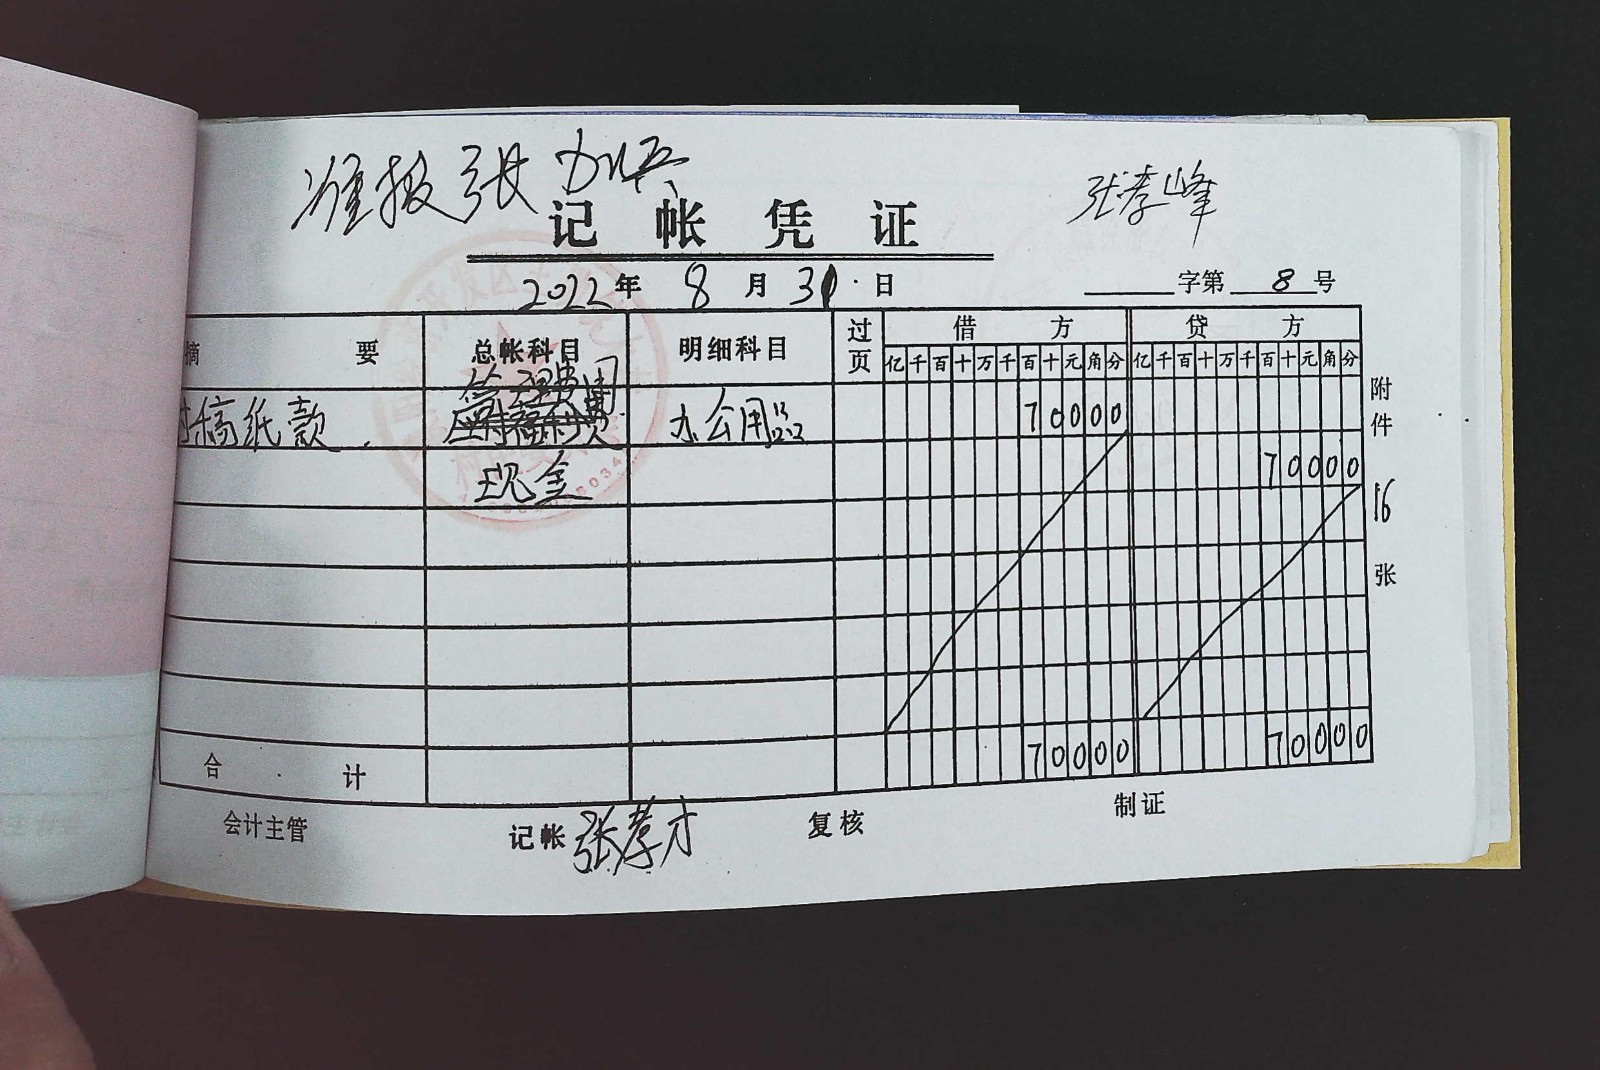 准报 张 张孝峰
记帐凭证
2022年8月31日 字第8号
摘要 总帐科目 明细科目 过页 借方 贷方
亿千百十万千百十元角分 亿千百十万千百十元角分
付稿纸款 管理费用 办公用品 70000
现金 70000
附件16张
合计 70000 70000
会计主管 记帐 张孝才 复核 制证